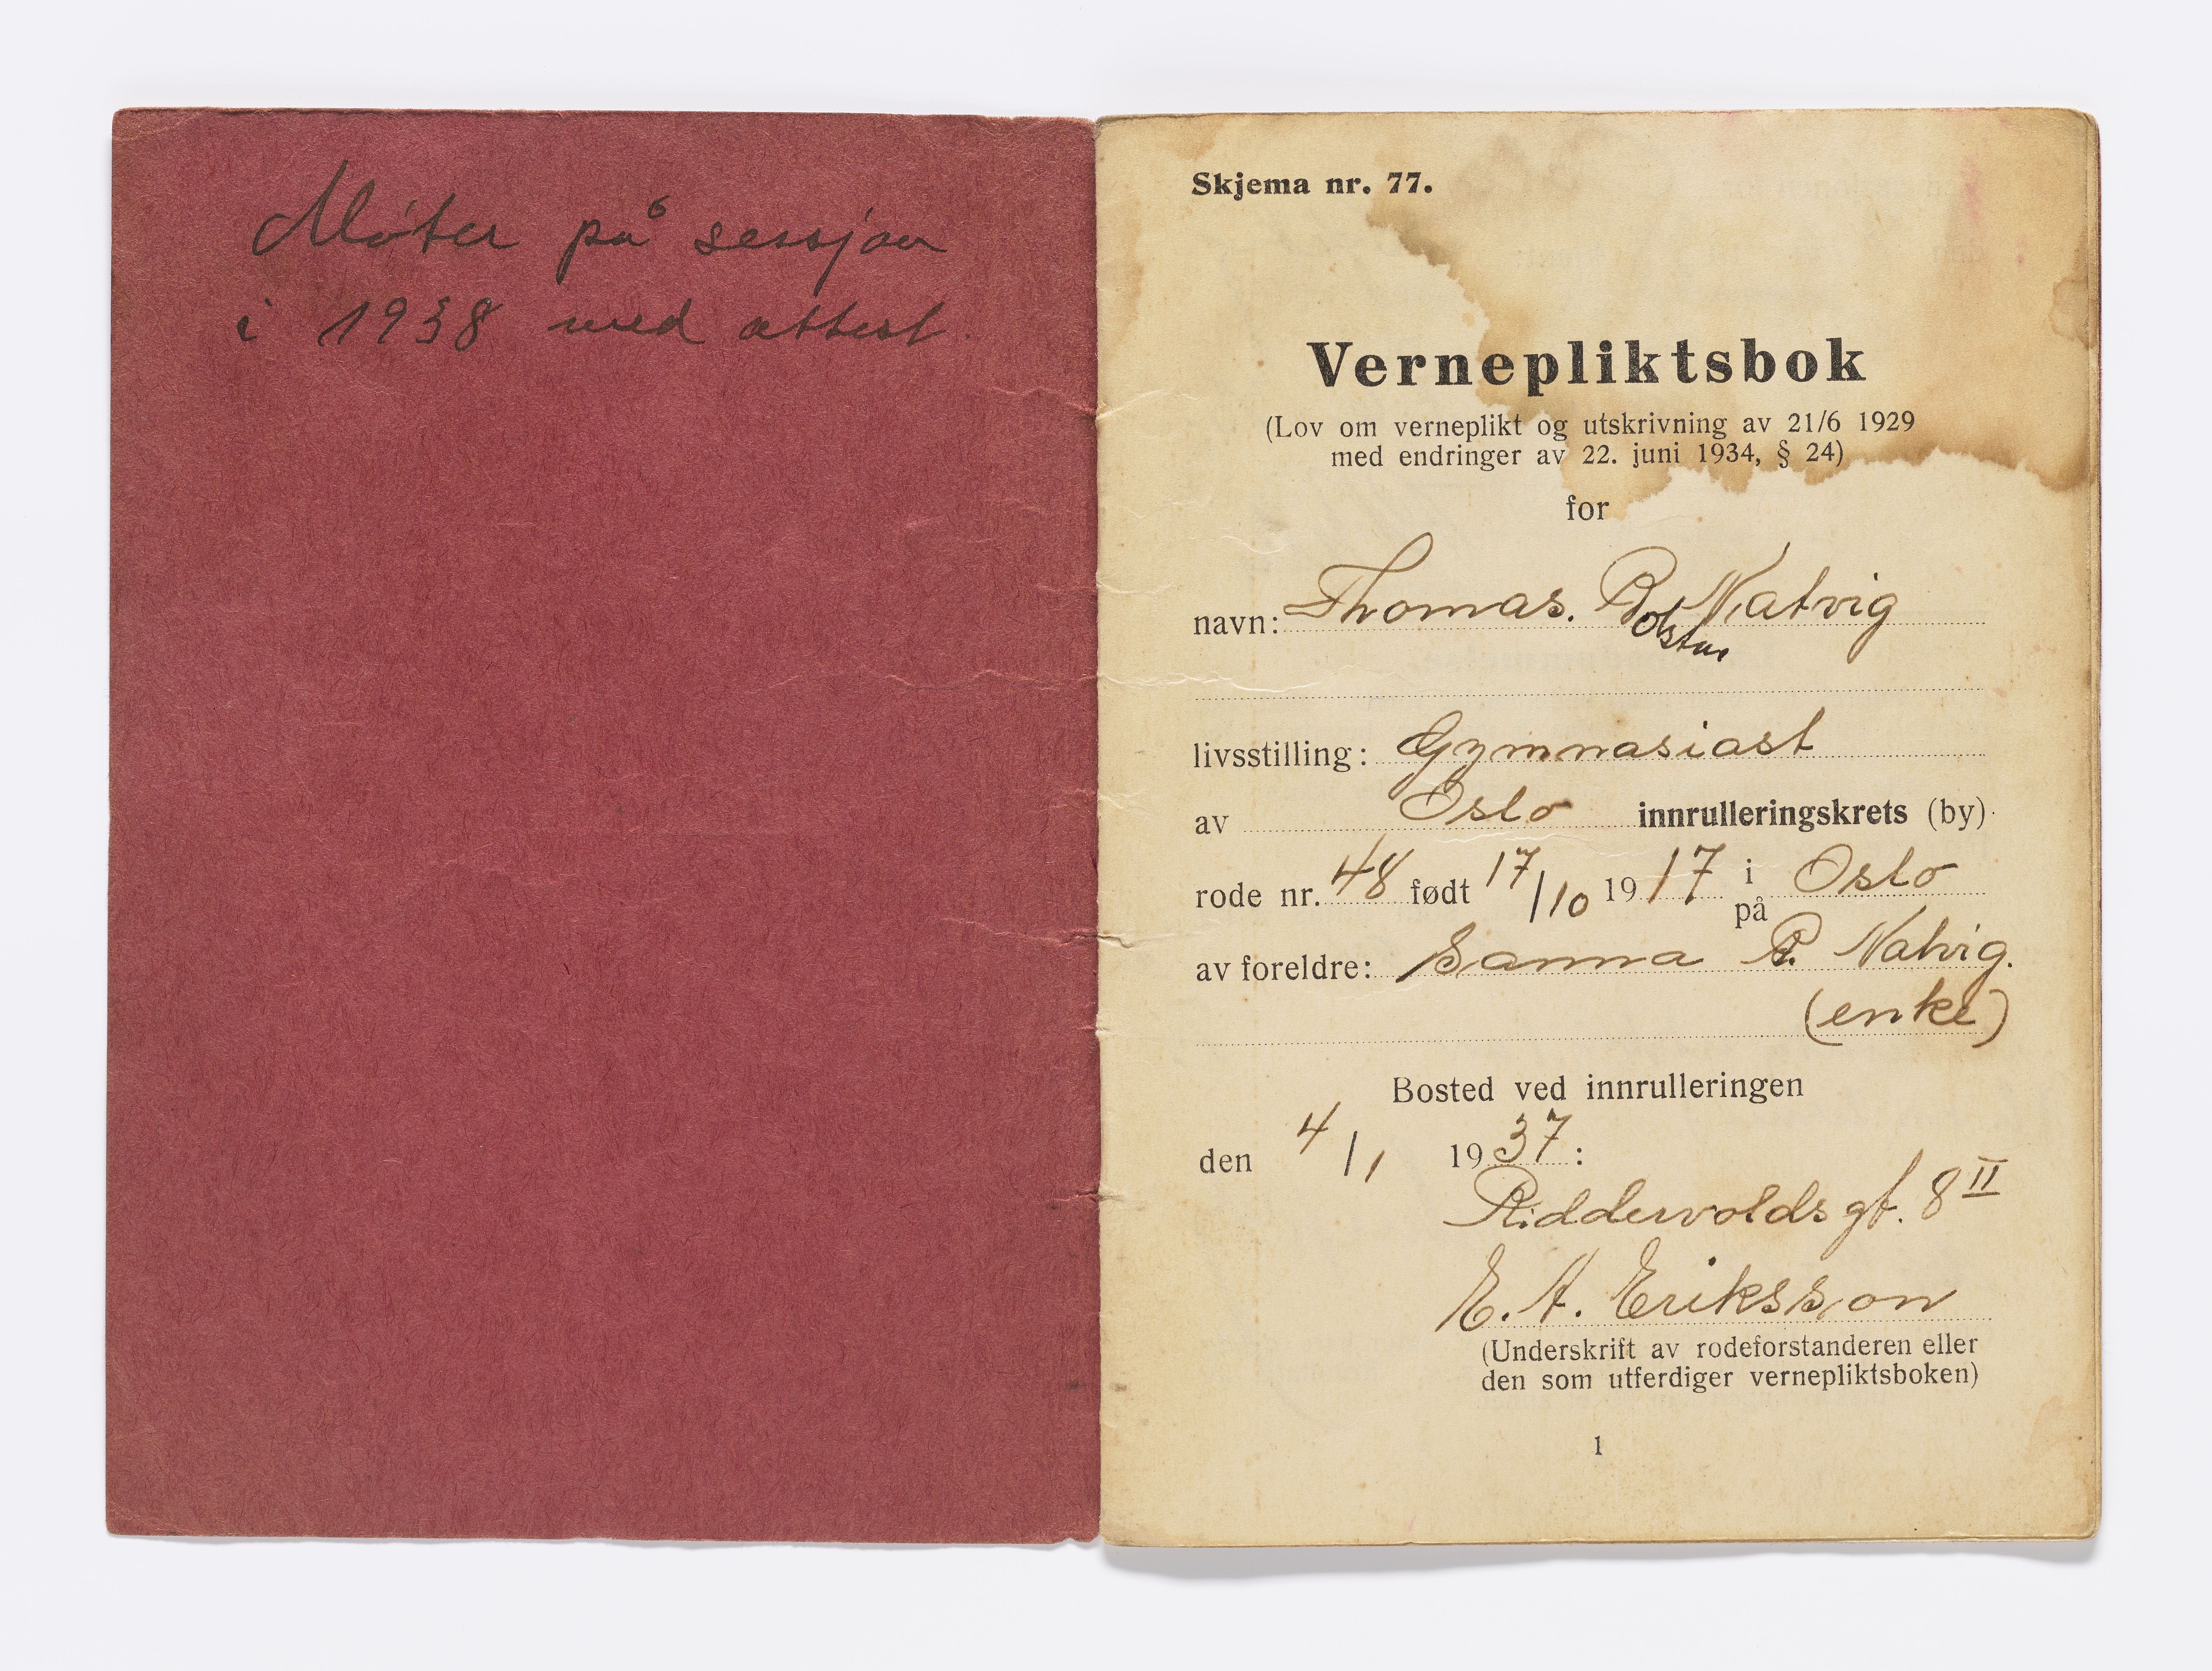 Møter på sessjon
i 1938 med attest.
Skjema nr. 77.
Vernepliktsbok
(Lov om verneplikt og utskrivning av 21/6 1929
med endringer av 22. juni 1934, § 24)
for
navn: Thomas. B Natvig
livsstilling: Gymnasiast
av Oslo innrulleringskrets (by)
rode nr. 48 født 17/10 1917 i på Oslo
av foreldre: Sanna P. Natvig.
(enke)
Bosted ved innrulleringen
den 4/1 1937:
Riddervolds gt. 8 II
E. A. Eriksson
(Underskrift av rodeforstanderen eller
den som utferdiger vernepliktsboken)
1